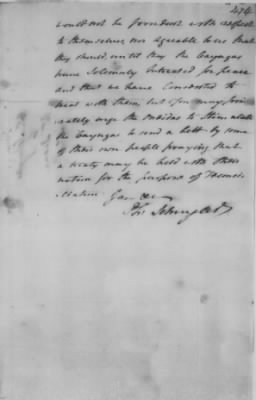 474
would not be prudent with respect
to themselves nor agreeable to us that
they should, until they the Cayugas
have Solemnly intreated for peace
and that we have Consented to
treat with them, but you may
urge the Oneidas to Stimulate
the Cayugas to send a belt by some
of their own people praying that
a treaty may be held with their
nation for the purpose of
Ph: Schuyler